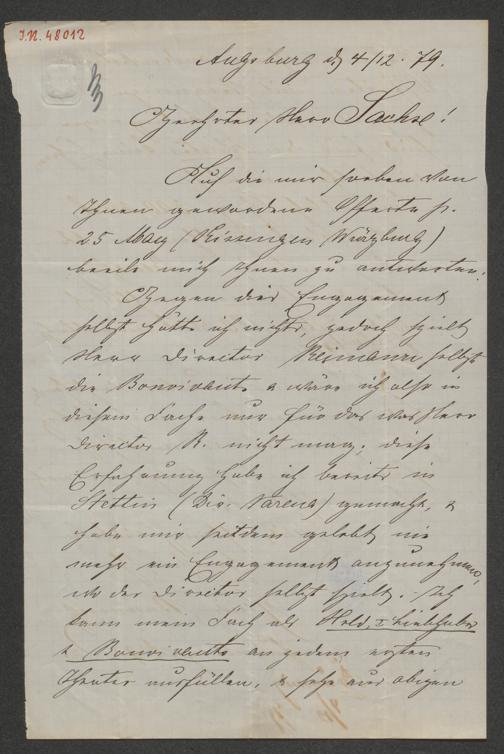 J.N. 48012
Augsburg d 4/12. 79.
Geehrter Herr Sachse!
Auf die mir soeben von
Ihnen gewordene Offerte p.
25 May (Kissingen Würzburg)
beeile mich Ihnen zu antworten.
Gegen dies Engagement
selbst hätte ich nichts, jedoch spielt
Herr Director Reimann selbst
die Bonvivants & wäre ich also in
diesem Fache nur für das was Herr
Director R. nicht mag, diese
Erfahrung habe ich bereits in
Stettin (Dir. Varena) gemacht, &
habe mir seitdem gelobt nie
mehr ein Engagement anzunehmen,
wo der Director selbst spielt. Ich
kann mein Fach als Held, I Liebhaber
& Bonvivants an jedem ersten
Theater ausfüllen, & sehe aus obigen